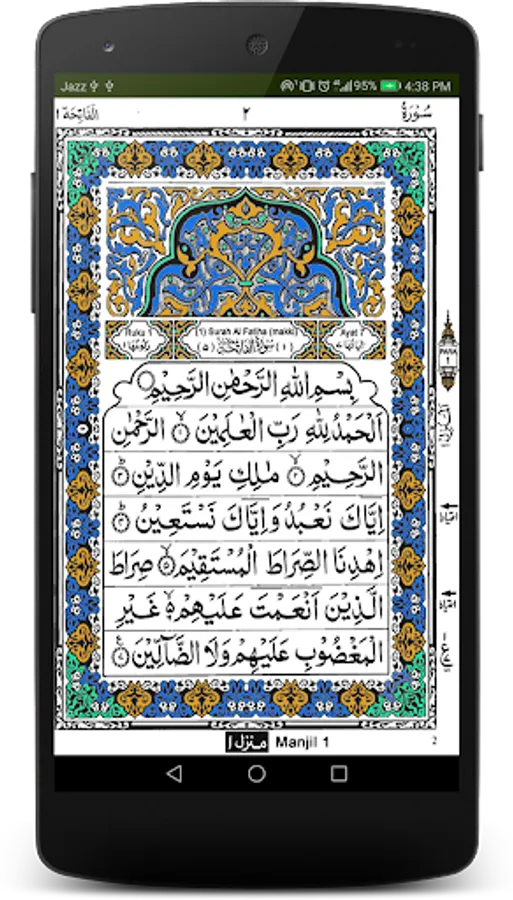 Jazz 95% 4:38 PM
سُوْرَةُ ٢ الْفَاتِحَة ١
Ruku 1 (1) Surah Al Fatiha (makki) Ayat 7
PARA 1
بِسْمِ اللهِ الرَّحْمٰنِ الرَّحِيْمِ
اَلْحَمْدُ لِلّٰهِ رَبِّ الْعٰلَمِيْنَ ۙ۝۱ الرَّحْمٰنِ
الرَّحِيْمِ ۙ۝۲ مٰلِكِ يَوْمِ الدِّيْنِ ۝۳
اِيَّاكَ نَعْبُدُ وَاِيَّاكَ نَسْتَعِيْنُ ۝۴
اِهْدِنَا الصِّرَاطَ الْمُسْتَقِيْمَ ۙ۝۵ صِرَاطَ
الَّذِيْنَ اَنْعَمْتَ عَلَيْهِمْ ۙ۝۶ غَيْرِ
الْمَغْضُوْبِ عَلَيْهِمْ وَلَا الضَّآلِّيْنَ ۝۷
منزل ١ Manjil 1 2